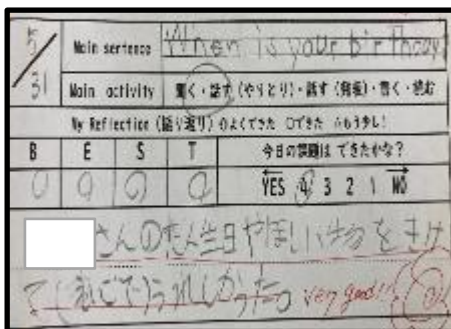 5/31
Main sentence When is your birthday
Main activity 聞く・話す(やりとり)・話す(発表)・書く・読む
My Reflection (振り返り) ◎よくできた ○できた △もう少し!
B E S T 今日の課題は できたかな?
◎ ◎ ◎ ◎ YES 4 3 2 1 NO
さんのたん生日やほしい物をきけ
てうれしかった。 very good!!